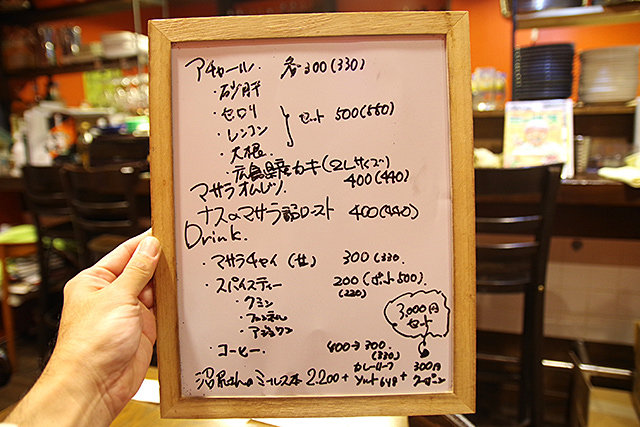 アチャール. 各300(330)
・砂肝
・セロリ
・レンコン
・大根
セット 500(550)
・広島県産カキ(2Lサイズ)
400(440)
マサラオムレツ.
ナスのマサラ ロースト 400(440)
Drink.
・マサラチャイ(甘) 300(330.
・スパイスティー 200(ポット500).
(220)
・クミン
・フェンネル
・アジョワン
・コーヒー. 400→300.
(330)
3,000円
セット
沼尻さんのミールス本 2,200+
カレーリーフ
ソルト 648 +
300円
クーポン